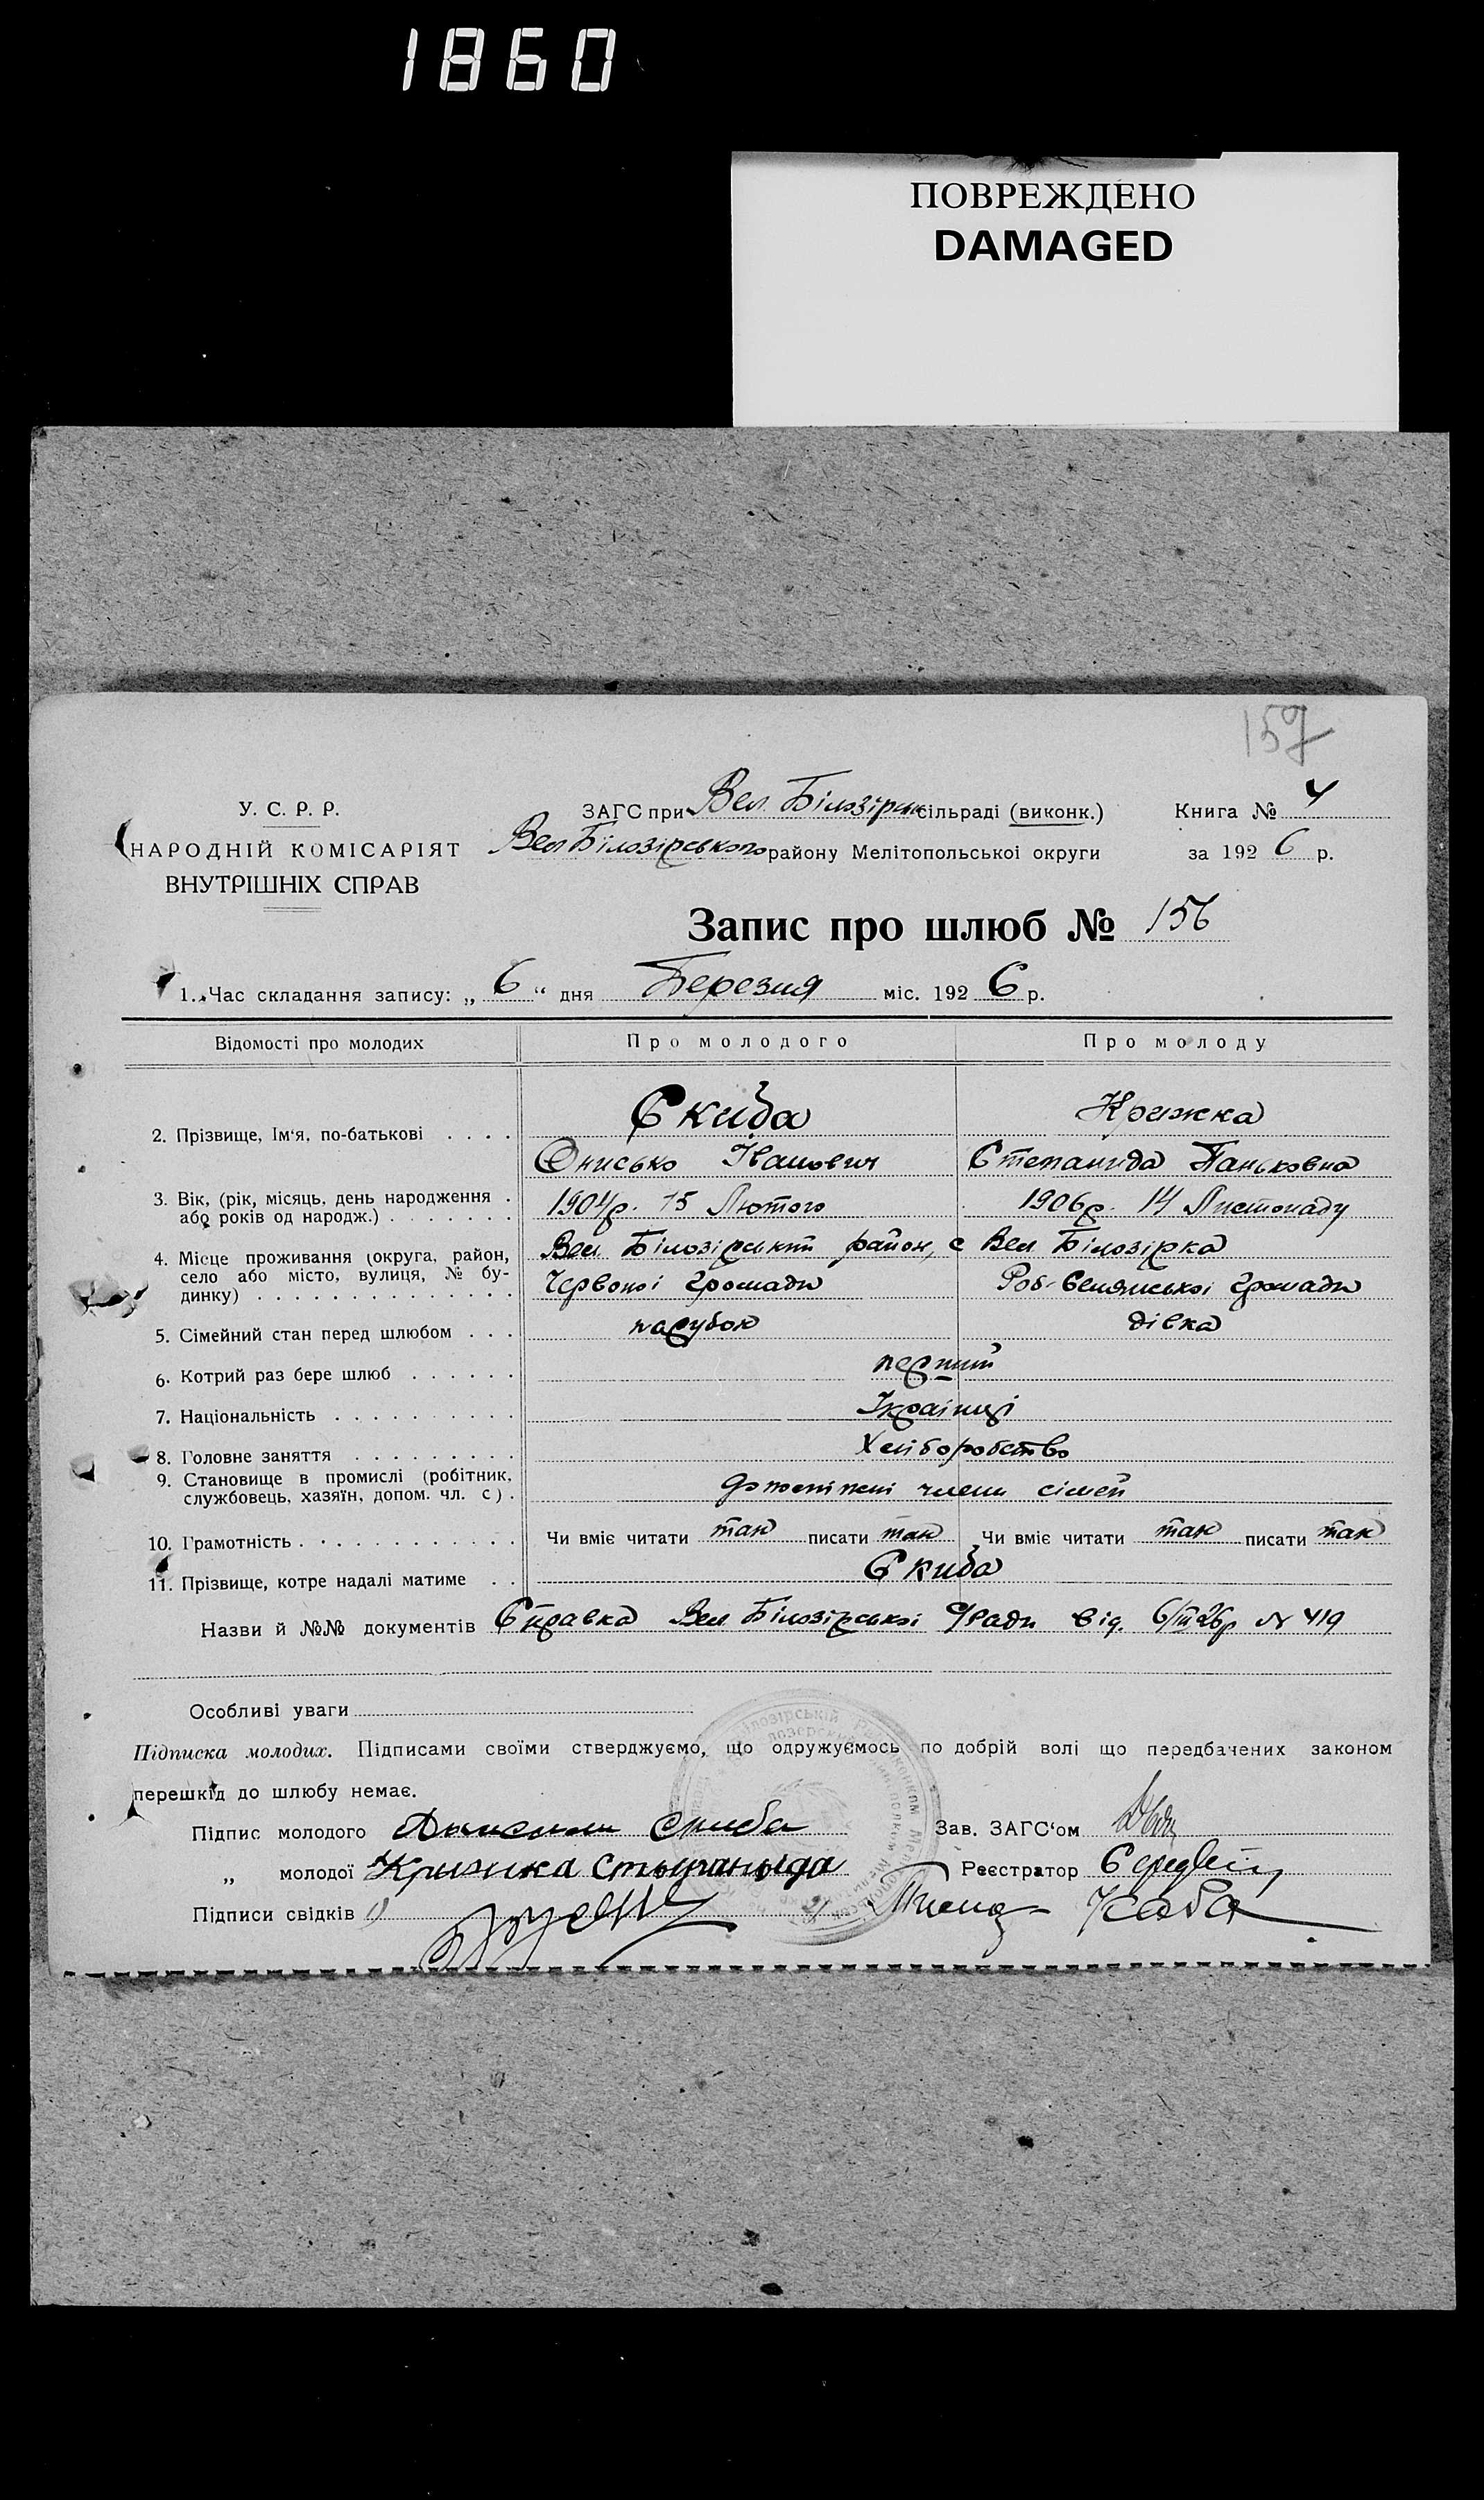 1860
ПОВРЕЖДЕНО
DAMAGED
157
У. С. Р. Р.
НАРОДНІЙ КОМІСАРІЯТ
ВНУТРІШНІХ СПРАВ
ЗАГС при Вел. Білозірськ сільраді (виконк.)
Вел Білозірського району Мелітопольської округи
Книга № 4
за 1926 р.
Запис про шлюб № 156
1. Час складання запису: „ 6 “ дня Березня міс. 1926 р.
Відомості про молодих
Про молодого
Про молоду
2. Прізвище, Ім‘я, по-батькові . . . .
Скиба
Крижка
Онисько Іванович
Степанида Паньковна
3. Вік, (рік, місяць, день народження .
або років од народж.) . . . . . . .
1904р. 15 Лютого
1906р. 14 Листопаду
4. Місце проживання (округа, район,
село або місто, вулиця, № бу-
динку) . . . . . . . . . . . . . .
Вел Білозірський район, с Вел Білозірка
Червоної громади
Роб-Селянської громади
5. Сімейний стан перед шлюбом . . .
парубок
дівка
6. Котрий раз бере шлюб . . . . . .
перший
7. Національність . . . . . . . . . .
Українці
8. Головне заняття . . . . . . . . .
Хліборобство
9. Становище в промислі (робітник,
службовець, хазяїн, допом. чл. с) .
допоміжні члени сімей
10. Грамотність . . . . . . . . . . . .
Чи вміє читати так писати так
Чи вміє читати так писати так
11. Прізвище, котре надалі матиме . .
Скиба
Назви й №№ документів Справка Вел Білозірської С/Ради від. 6/III 26р № 419
Особливі уваги
Підписка молодих. Підписами своїми стверджуємо, що одружуємось по добрій волі що передбачених законом
перешкід до шлюбу немає.
Підпис молодого Скиба
Зав. ЗАГС‘ом
„ молодої Крижка
Реєстратор
Підписи свідків 1) 2)